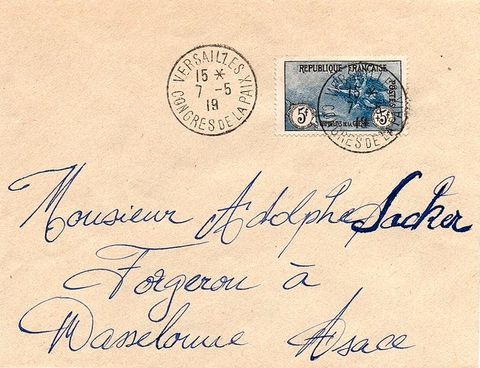 VERSAILLES XIV
15 *
7 -5
19
CONGRES DE LA PAIX
REPUBLIQUE FRANÇAISE
POSTES
5F +5F
ORPHELINS DE LA GUERRE
Monsieur Adolphe Sacker
Forgeron à
Wasselonne Alsace